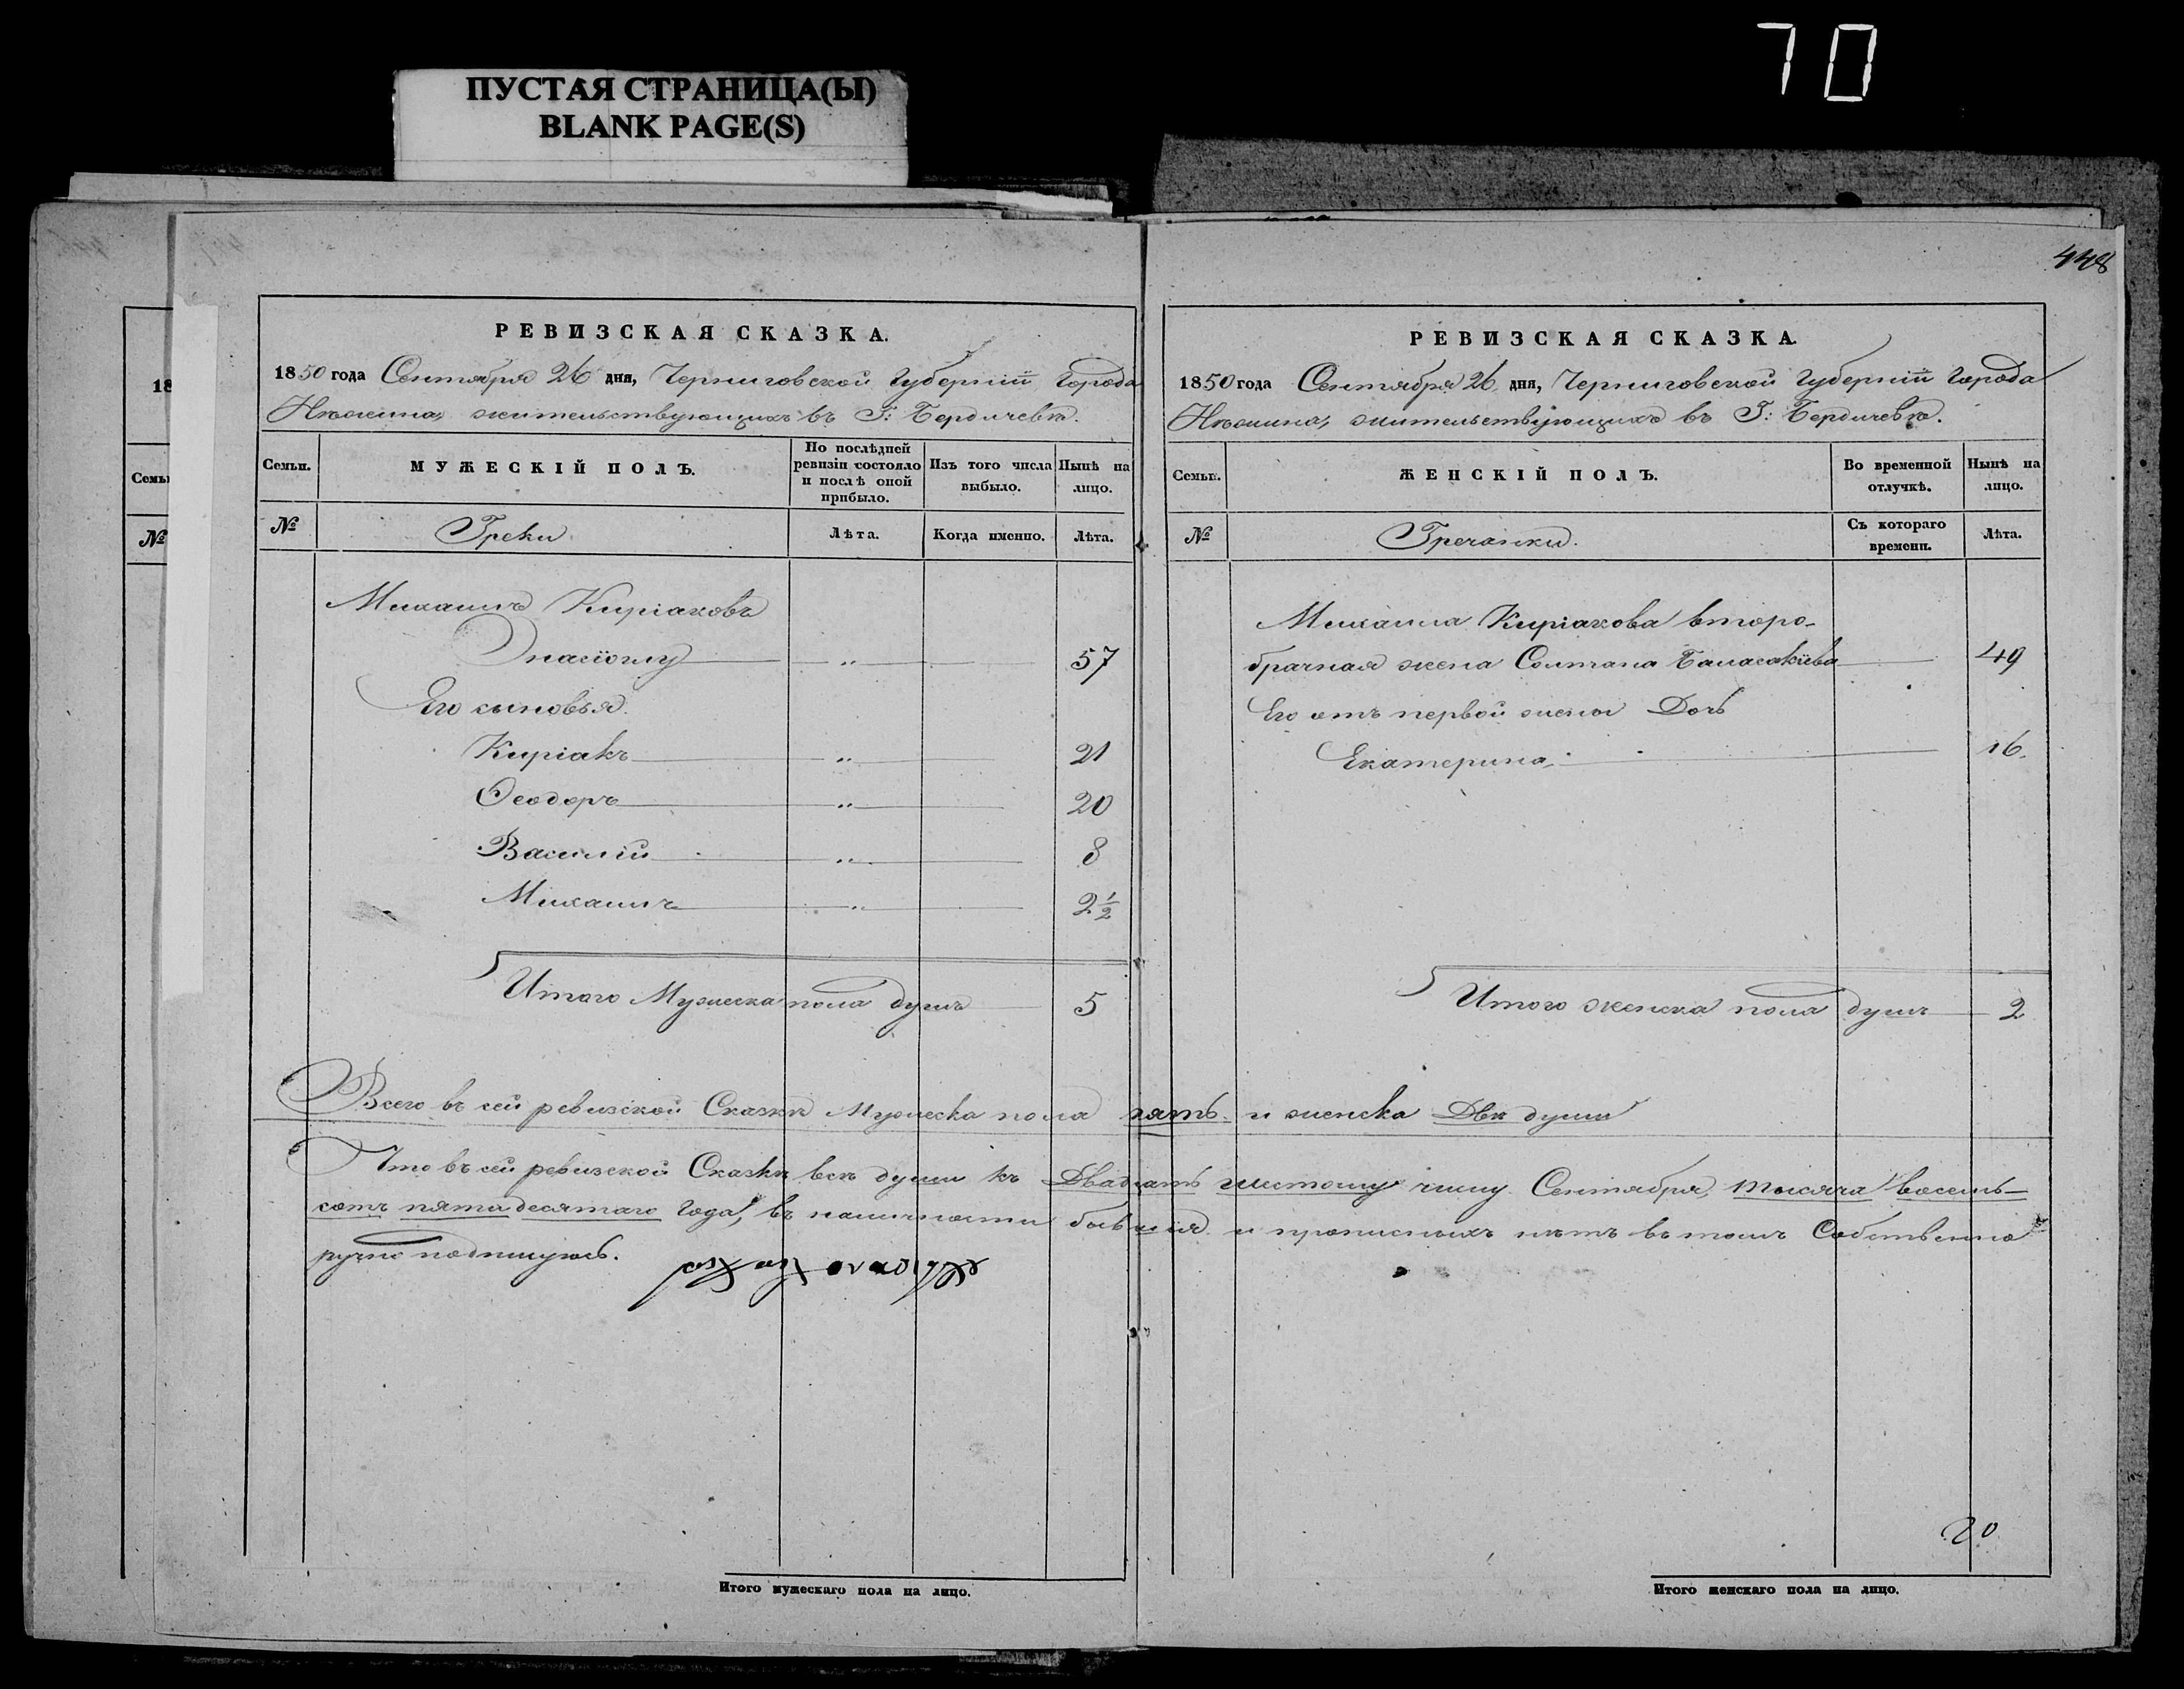 70
ПУСТАЯ СТРАНИЦА(Ы)
BLANK PAGE(S)
448
РЕВИЗСКАЯ СКАЗКА.
1850 года Сентября 26 дня, Черниговской Губернiи Города
Нѣжина, жительствующихъ въ Г: Бердичевѣ.
Семьи.
МУЖЕСКІЙ ПОЛЪ.
По послѣдней
ревизіи состояло
и послѣ оной
прибыло.
Изъ того числа
выбыло.
Нынѣ на
лицо.
№
Греки
Лѣта.
Когда именно.
Лѣта.
Михаилъ Киріаковъ
57
Его сыновья.
Киріакъ 21
Ѳеодоръ 20
Василій 8
Михаилъ 2½
Итого Мужеска пола душъ 5
РЕВИЗСКАЯ СКАЗКА.
1850 года Сентября 26 дня, Черниговской Губернiи Города
Нѣжина, жительствующихъ въ Г: Бердичевѣ.
Семьи.
ЖЕНСКІЙ ПОЛЪ.
Во временной
отлучкѣ.
Нынѣ на
лицо.
№
Гречанки.
Съ котораго
времени.
Лѣта.
Михаила Киріакова второ-
брачная жена Солтана 49
Его отъ первой жены Дочь
Екатерина 16.
Итого женска пола душъ 2
Всего въ сей ревизской Сказкѣ Мужеска пола пять и женска Двѣ души
Что въ сей ревизской Сказкѣ всѣ души къ Двадцать шестому числу Сентября, тысяча восемь-
сотъ пятьдесятаго Года, въ наличности бывшія и прописныхъ нѣтъ въ томъ Собственно
ручно подпишусь.
20
Итого мужескаго пола на лицо.
Итого женскаго пола на лицо.
18
Семьи
№